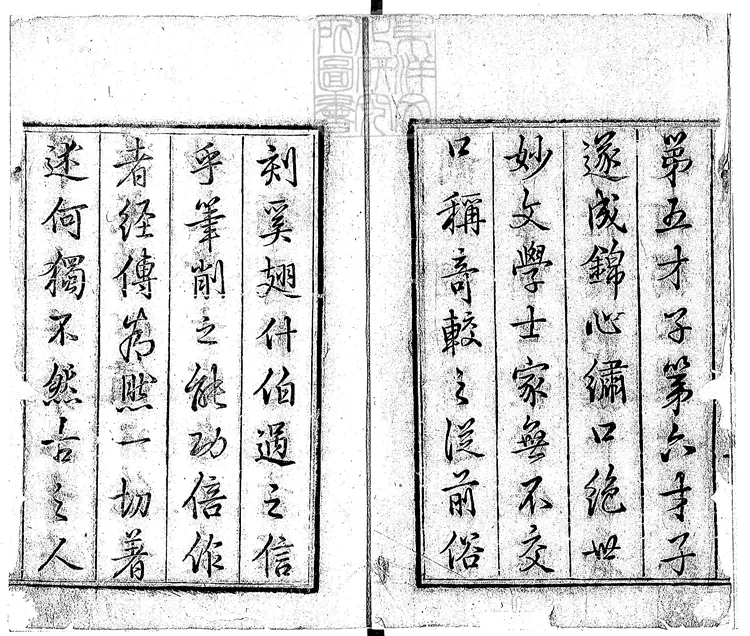 第五才子第六才子
遂成錦心繡口絶世
妙文學士家無不交
口稱奇較之從前俗
刻奚翅什伯過之信
乎筆削之能功倍作
者經傳為然一切著
述何獨不然古之人